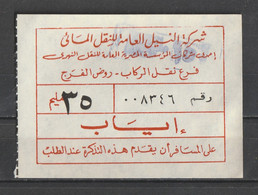 شركة النيل العامة للنقل المائى
إحدى شركات المؤسسة المصرية العامة للنقل النهرى
فرع نقل الركاب - روض الفرج
رقم ٠٠٨٣٤٦ ٣٥ مليم
إياب
على المسافر أن يقدم هذه التذكرة عند الطلب